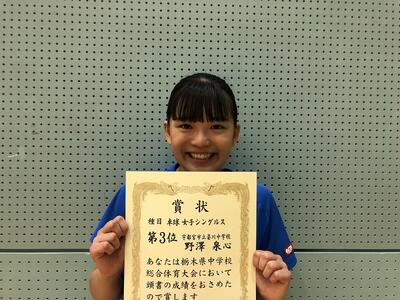 賞状
種目 卓球 女子シングルス
第3位 宇都宮市立姿川中学校
野澤 泉心
あなたは栃木県中学校
総合体育大会において
頭書の成績をおさめた
ので賞します